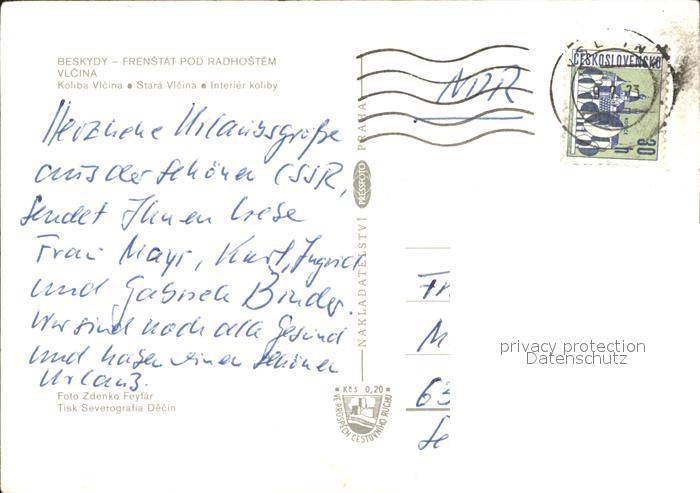 BESKYDY – FRENŠTÁT POD RADHOŠTĚM
VLČINA
Koliba Vlčina ● Stará Vlčina ● Interiér koliby
Herzliche Urlaubsgrüße
aus der schönen CSSR,
sendet Ihnen liebe
Frau Mayr, Kurt, Ingrid
und Gabriele Binder.
Wir sind noch alle Gesund
und haben einen schönen
Urlaub.
Foto Zdenko Feyfar
Tisk Severografia Děčín
NAKLADATELSTVÍ PRESSFOTO PRAHA
Kčs 0,20
VE PROSPĚCH CESTOVNÍHO RUCHU
NDR
ČESKOSLOVENSKO
30 h
Fr
M
63
Se
privacy protection
Datenschutz